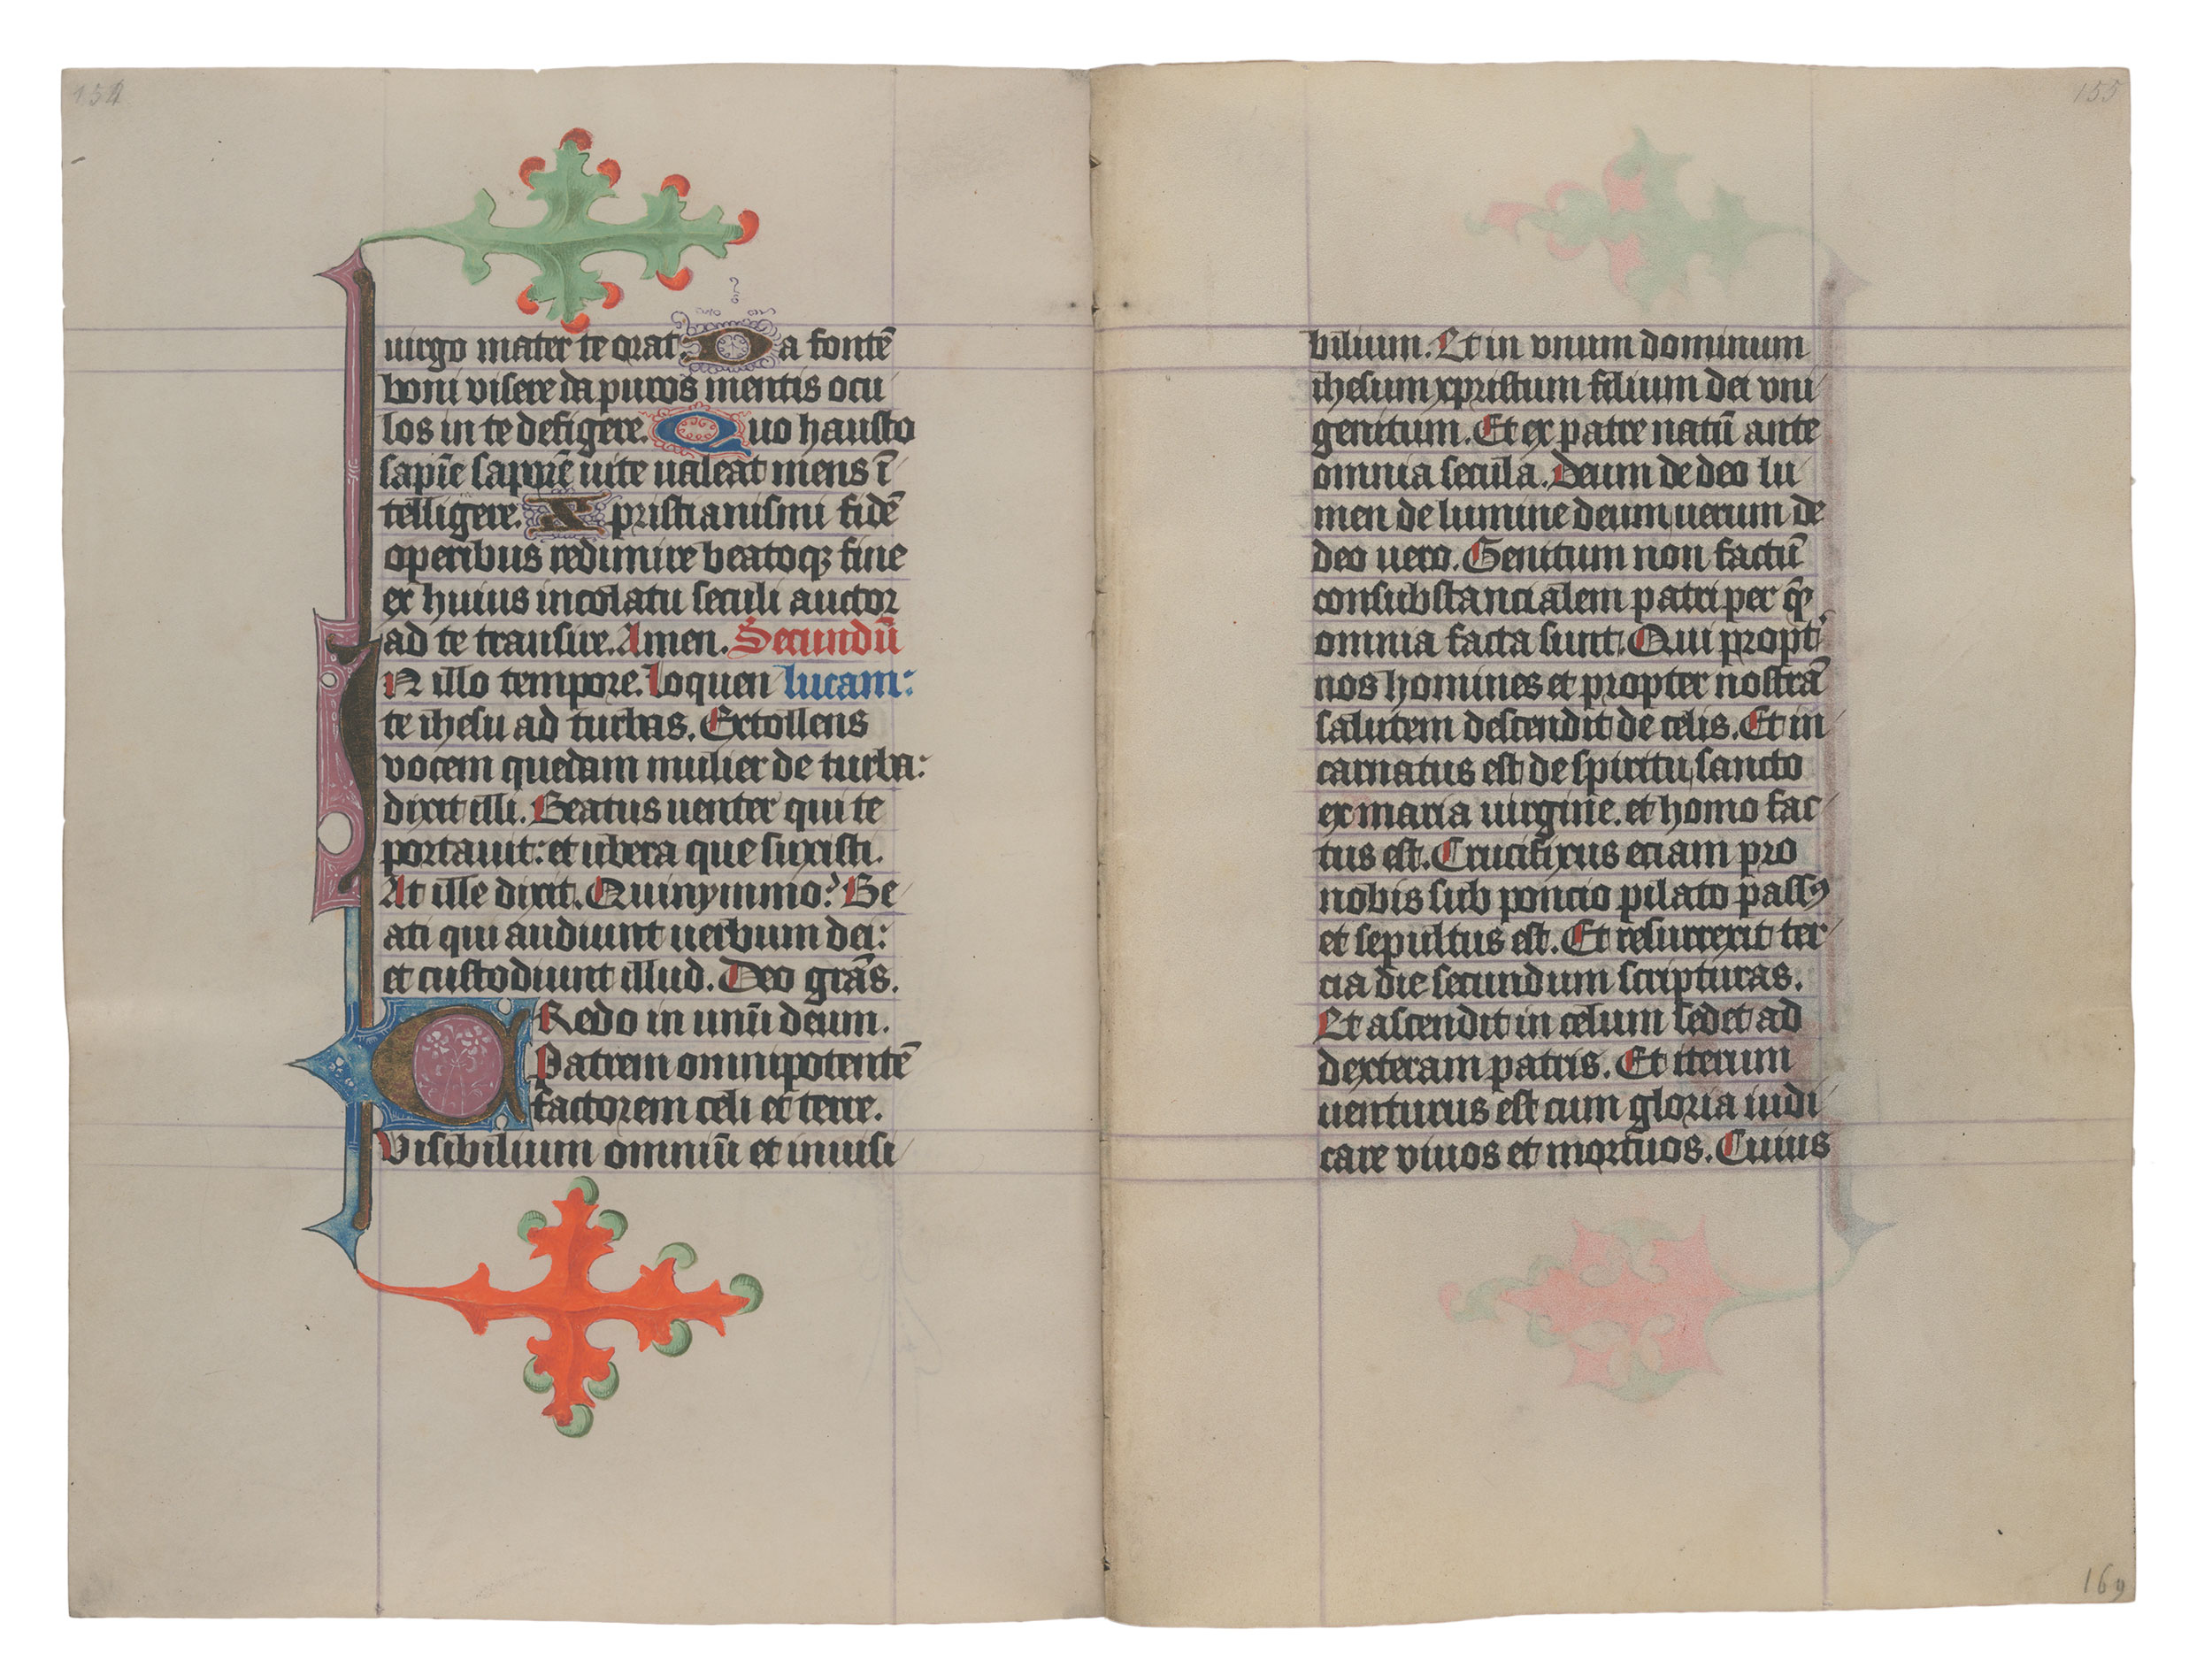 154
uirgo mater te orat. Da fontē
boni visere da puros mentis ocu
los in te defigere. Quo hausto
sapīe saporē uite ualeat mens ī
telligere. Xpristianismi fidē
operibus redimire beatoqꝫ fine
ex huius incolatu seculi auctor
ad te transire. Amen. Secundū
IN illo tempore. Loquen lucam:
te ihesu ad turbas. Extollens
vocem quedam mulier de turba:
dixit illi. Beatus uenter qui te
portauit: et ubera que suxisti.
At ille dixit. Quinymmo? Be
ati qui audiunt uerbum dei:
et custodiunt illud. Deo grās.
CRedo in unū deum.
Patrem omnipotentē
factorem celi et terre.
Visibilium omniū et inuisi
155
bilium. Et in vnum dominum
ihesum xpristum filium dei vni
genitum. Et ex patre natū ante
omnia secula. Deum de deo lu
men de lumine deum uerum de
deo uero. Genitum non factū
consubstancialem patri per quē
omnia facta sunt. Qui propt'
nos homines et propter nostrā
salutem descendit de celis. Et in
carnatus est de spiritu sancto
ex maria uirgine. et homo fac
tus est. Crucifixus eciam pro
nobis sub poncio pilato passꝰ
et sepultus est. Et resurrexit ter
cia die secundum scripturas.
Et ascendit in celum sedet ad
dexteram patris. Et iterum
uenturus est cum gloria iudi
care viuos et mortuos. Cuius
169